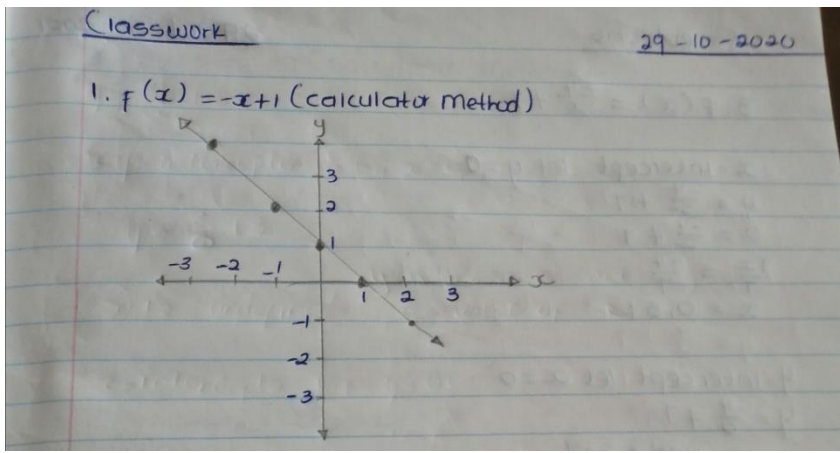 Classwork
29-10-2020
1. f(x) = -x+1 (calculator method)
y
3
2
1
-3 -2 -1
x
1 2 3
-1
-2
-3